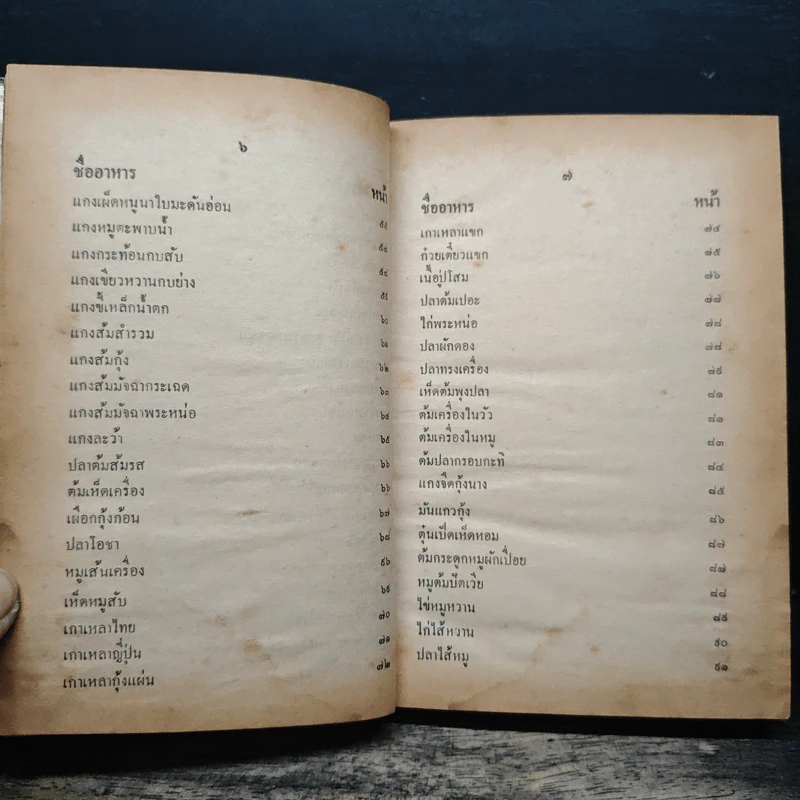 ๖
ชื่ออาหาร หน้า
แกงเผ็ดหนูนาใบมะดันอ่อน
แกงหมูตะพาบน้ำ
แกงกระท้อนกบสับ
แกงเขียวหวานกบย่าง ๕๙
แกงขี้เหล็กน้ำตก ๖๐
แกงส้มสำรวม ๖๑
แกงส้มกุ้ง ๖๒
แกงส้มมัจฉากระเฉด ๖๓
แกงส้มมัจฉาพระหน่อ ๖๔
แกงละว้า ๖๕
ปลาต้มส้มรส ๖๖
ต้มเห็ดเครื่อง ๖๖
เผือกกุ้งก้อน ๖๗
ปลาโอชา ๖๘
หมูเส้นเครื่อง ๙๖
เห็ดหมูสับ ๖๙
เกาเหลาไทย ๗๐
เกาเหลาญี่ปุ่น ๗๑
เกาเหลากุ้งแผ่น ๗๒
๗
ชื่ออาหาร หน้า
เกาเหลาแขก ๗๔
ก๋วยเตี๋ยวแขก ๗๕
เนื้ออู่ปโสม ๗๖
ปลาต้มเปอะ ๗๗
ไก่พระหน่อ ๗๘
ปลาผักดอง ๗๘
ปลาทรงเครื่อง ๗๙
เห็ดต้มพุงปลา ๘๑
ต้มเครื่องในวัว ๘๑
ต้มเครื่องในหมู ๘๓
ต้มปลากรอบกะทิ ๘๔
แกงจืดกุ้งนาง ๘๕
มันแกวกุ้ง ๘๖
ตุ๋นเป็ดเห็ดหอม ๘๗
ต้มกระดูกหมูผักเปื่อย ๘๗
หมูต้มบัตเวีย ๘๘
ไข่หมูหวาน ๘๙
ไก่ไส้หวาน ๙๐
ปลาไส้หมู ๙๑